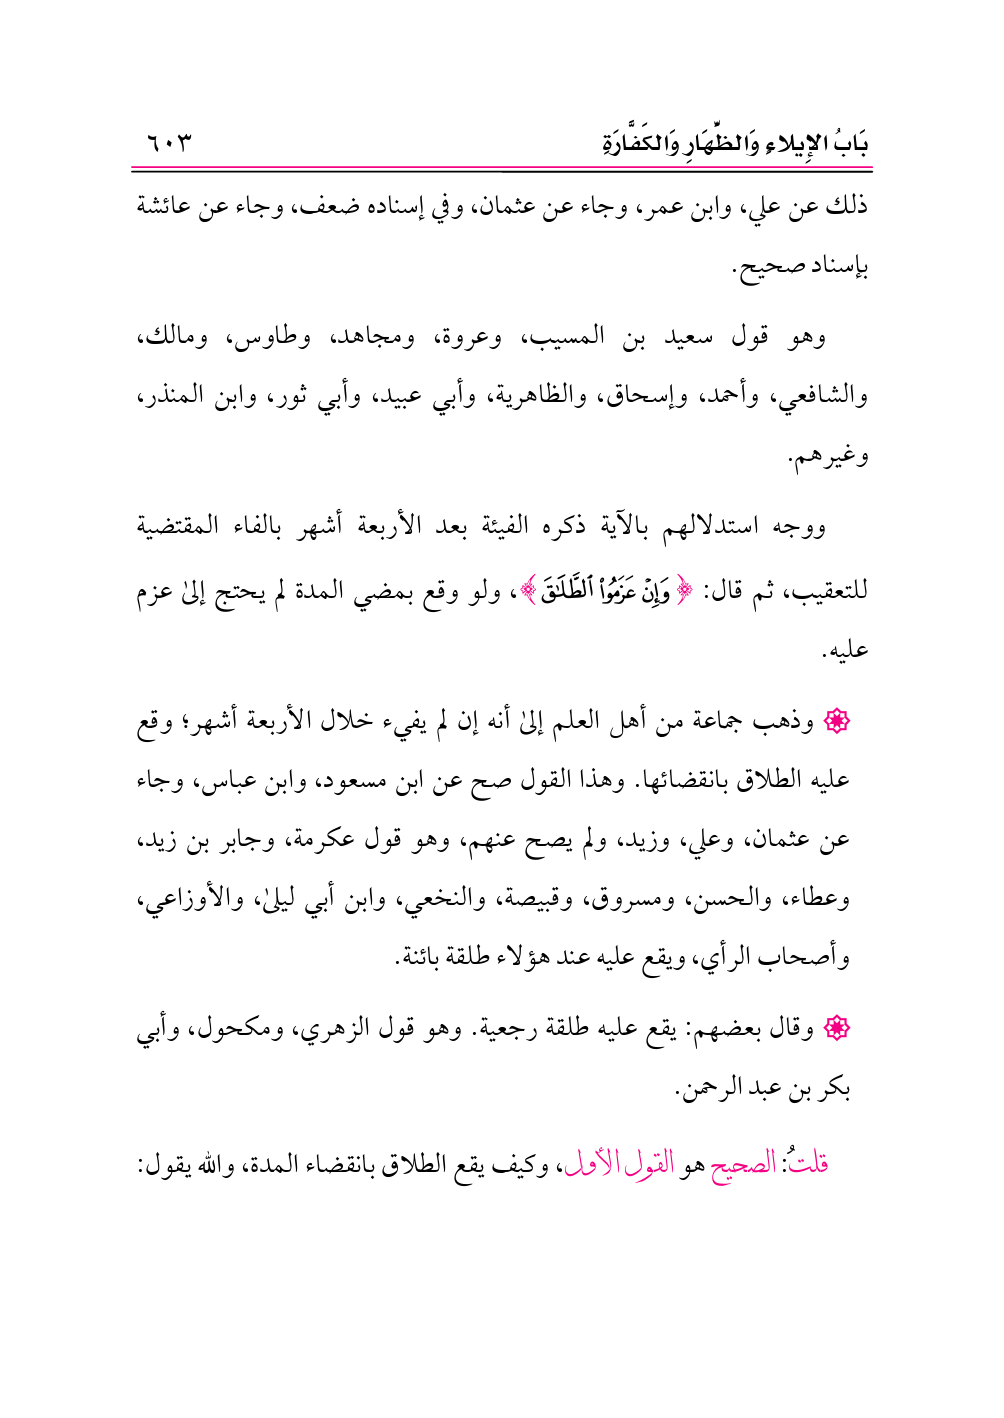 بَابُ الإِيلاءِ وَالظِّهَارِ وَالكَفَّارَةِ ٦٠٣
ذلك عن علي، وابن عمر، وجاء عن عثمان، وفي إسناده ضعف، وجاء عن عائشة
بإسناد صحيح.
وهو قول سعيد بن المسيب، وعروة، ومجاهد، وطاوس، ومالك،
والشافعي، وأحمد، وإسحاق، والظاهرية، وأبي عبيد، وأبي ثور، وابن المنذر،
وغيرهم.
ووجه استدلالهم بالآية ذكره الفيئة بعد الأربعة أشهر بالفاء المقتضية
للتعقيب، ثم قال: ﴿ وَإِنْ عَزَمُوا۟ ٱلطَّلَـٰقَ ﴾، ولو وقع بمضي المدة لم يحتج إلىٰ عزم
عليه.
۞ وذهب جماعة من أهل العلم إلىٰ أنه إن لم يفيء خلال الأربعة أشهر؛ وقع
عليه الطلاق بانقضائها. وهذا القول صح عن ابن مسعود، وابن عباس، وجاء
عن عثمان، وعلي، وزيد، ولم يصح عنهم، وهو قول عكرمة، وجابر بن زيد،
وعطاء، والحسن، ومسروق، وقبيصة، والنخعي، وابن أبي ليلىٰ، والأوزاعي،
وأصحاب الرأي، ويقع عليه عند هؤلاء طلقة بائنة.
۞ وقال بعضهم: يقع عليه طلقة رجعية. وهو قول الزهري، ومكحول، وأبي
بكر بن عبد الرحمن.
قلتُ: الصحيح هو القول الأول، وكيف يقع الطلاق بانقضاء المدة، والله يقول: